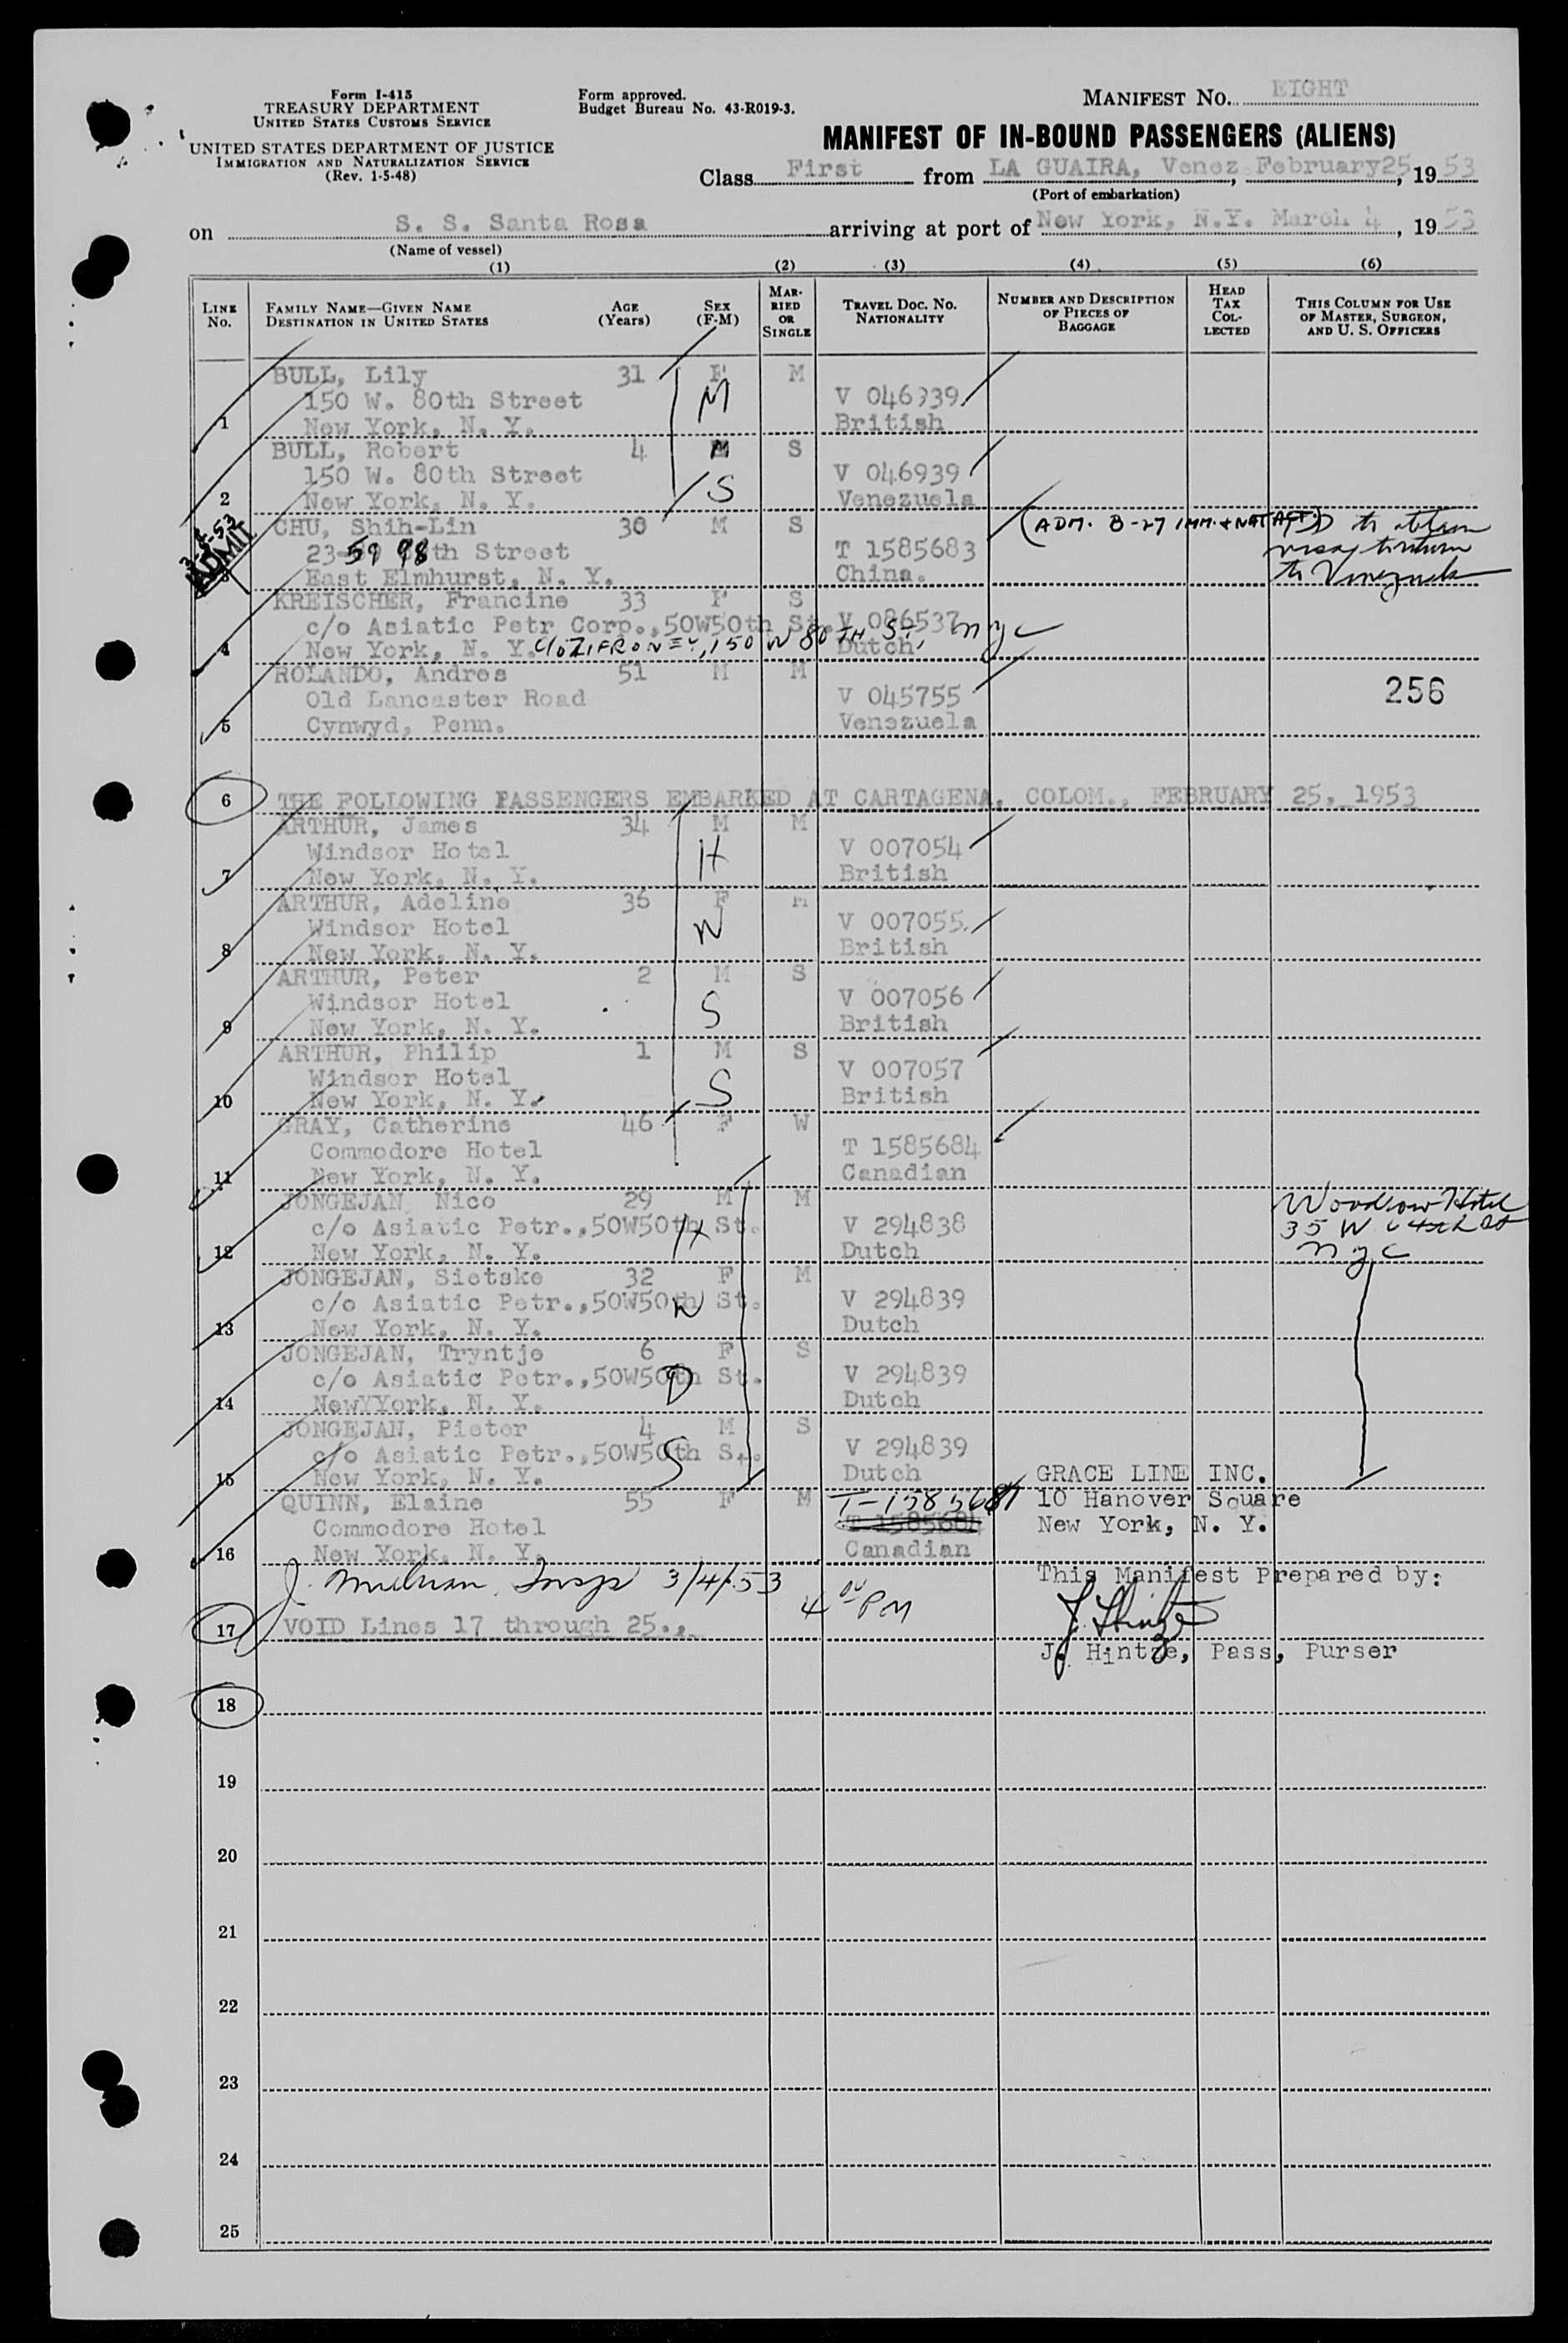 Form I-415
TREASURY DEPARTMENT
UNITED STATES CUSTOMS SERVICE
UNITED STATES DEPARTMENT OF JUSTICE
IMMIGRATION AND NATURALIZATION SERVICE
(Rev. 1-5-48)
Form approved.
Budget Bureau No. 43-R019-3.
MANIFEST NO. EIGHT
MANIFEST OF IN-BOUND PASSENGERS (ALIENS)
Class First from LA GUAIRA, Venez, February25, 1953
(Port of embarkation)
on S. S. Santa Rosa arriving at port of New York, N.Y. March 4, 1953
(Name of vessel)
(1) (2) (3) (4) (5) (6)
LINE No. FAMILY NAME—GIVEN NAME DESTINATION IN UNITED STATES AGE (Years) SEX (F-M) MARRIED OR SINGLE TRAVEL DOC. NO. NATIONALITY NUMBER AND DESCRIPTION OF PIECES OF BAGGAGE HEAD TAX COLLECTED THIS COLUMN FOR USE OF MASTER, SURGEON, AND U. S. OFFICERS
BULL, Lily 31 F M
150 W. 80th Street M V 046939
1 New York, N. Y. British
BULL, Robert 4 M S
150 W. 80th Street S V 046939
2 New York, N. Y. Venezuela
3-4-53 ADMIT
CHU, Shih-Lin 30 M S (ADM. B-27 IMM. + NAT ACT) to obtain
23-59 98th Street T 1585683 visa to return
3 East Elmhurst, N. Y. China. to Venezuela
KREISCHER, Francine 33 F S
c/o Asiatic Petr Corp., 50W50th St. V 086537
4 New York, N. Y. 150 W 80TH ST, nyc Dutch
ROLANDO, Andres 51 M M
Old Lancaster Road V 045755 256
5 Cynwyd, Penn. Venezuela
6 THE FOLLOWING PASSENGERS EMBARKED AT CARTAGENA, COLOM., FEBRUARY 25, 1953
ARTHUR, James 34 M M
Windsor Hotel H V 007054
7 New York, N. Y. British
ARTHUR, Adeline 36 F M
Windsor Hotel W V 007055
8 New York, N. Y. British
ARTHUR, Peter 2 M S
Windsor Hotel S V 007056
9 New York, N. Y. British
ARTHUR, Philip 1 M S
Windsor Hotel S V 007057
10 New York, N. Y. British
GRAY, Catherine 46 F W
Commodore Hotel T 1585684
11 New York, N. Y. Canadian
JONGEJAN, Nico 29 M M Woodrow Hotel
c/o Asiatic Petr., 50W50th St. H V 294838 35 W 64th St
12 New York, N. Y. Dutch nyc
JONGEJAN, Sietske 32 F M
c/o Asiatic Petr., 50W50th St. W V 294839
13 New York, N. Y. Dutch
JONGEJAN, Tryntje 6 F S
c/o Asiatic Petr., 50W50th St. D V 294839
14 NewYYork, N. Y. Dutch
JONGEJAN, Pieter 4 M S
c/o Asiatic Petr., 50W50th St. S V 294839
15 New York, N. Y. Dutch GRACE LINE INC.
QUINN, Elaine 55 F M 10 Hanover Square
Commodore Hotel T 1585684 New York, N. Y.
16 New York, N. Y. Canadian
Insp 3/4/53 4 PM This Manifest Prepared by:
17 VOID Lines 17 through 25. J. Hintze
J. Hintze, Pass, Purser
18
19
20
21
22
23
24
25